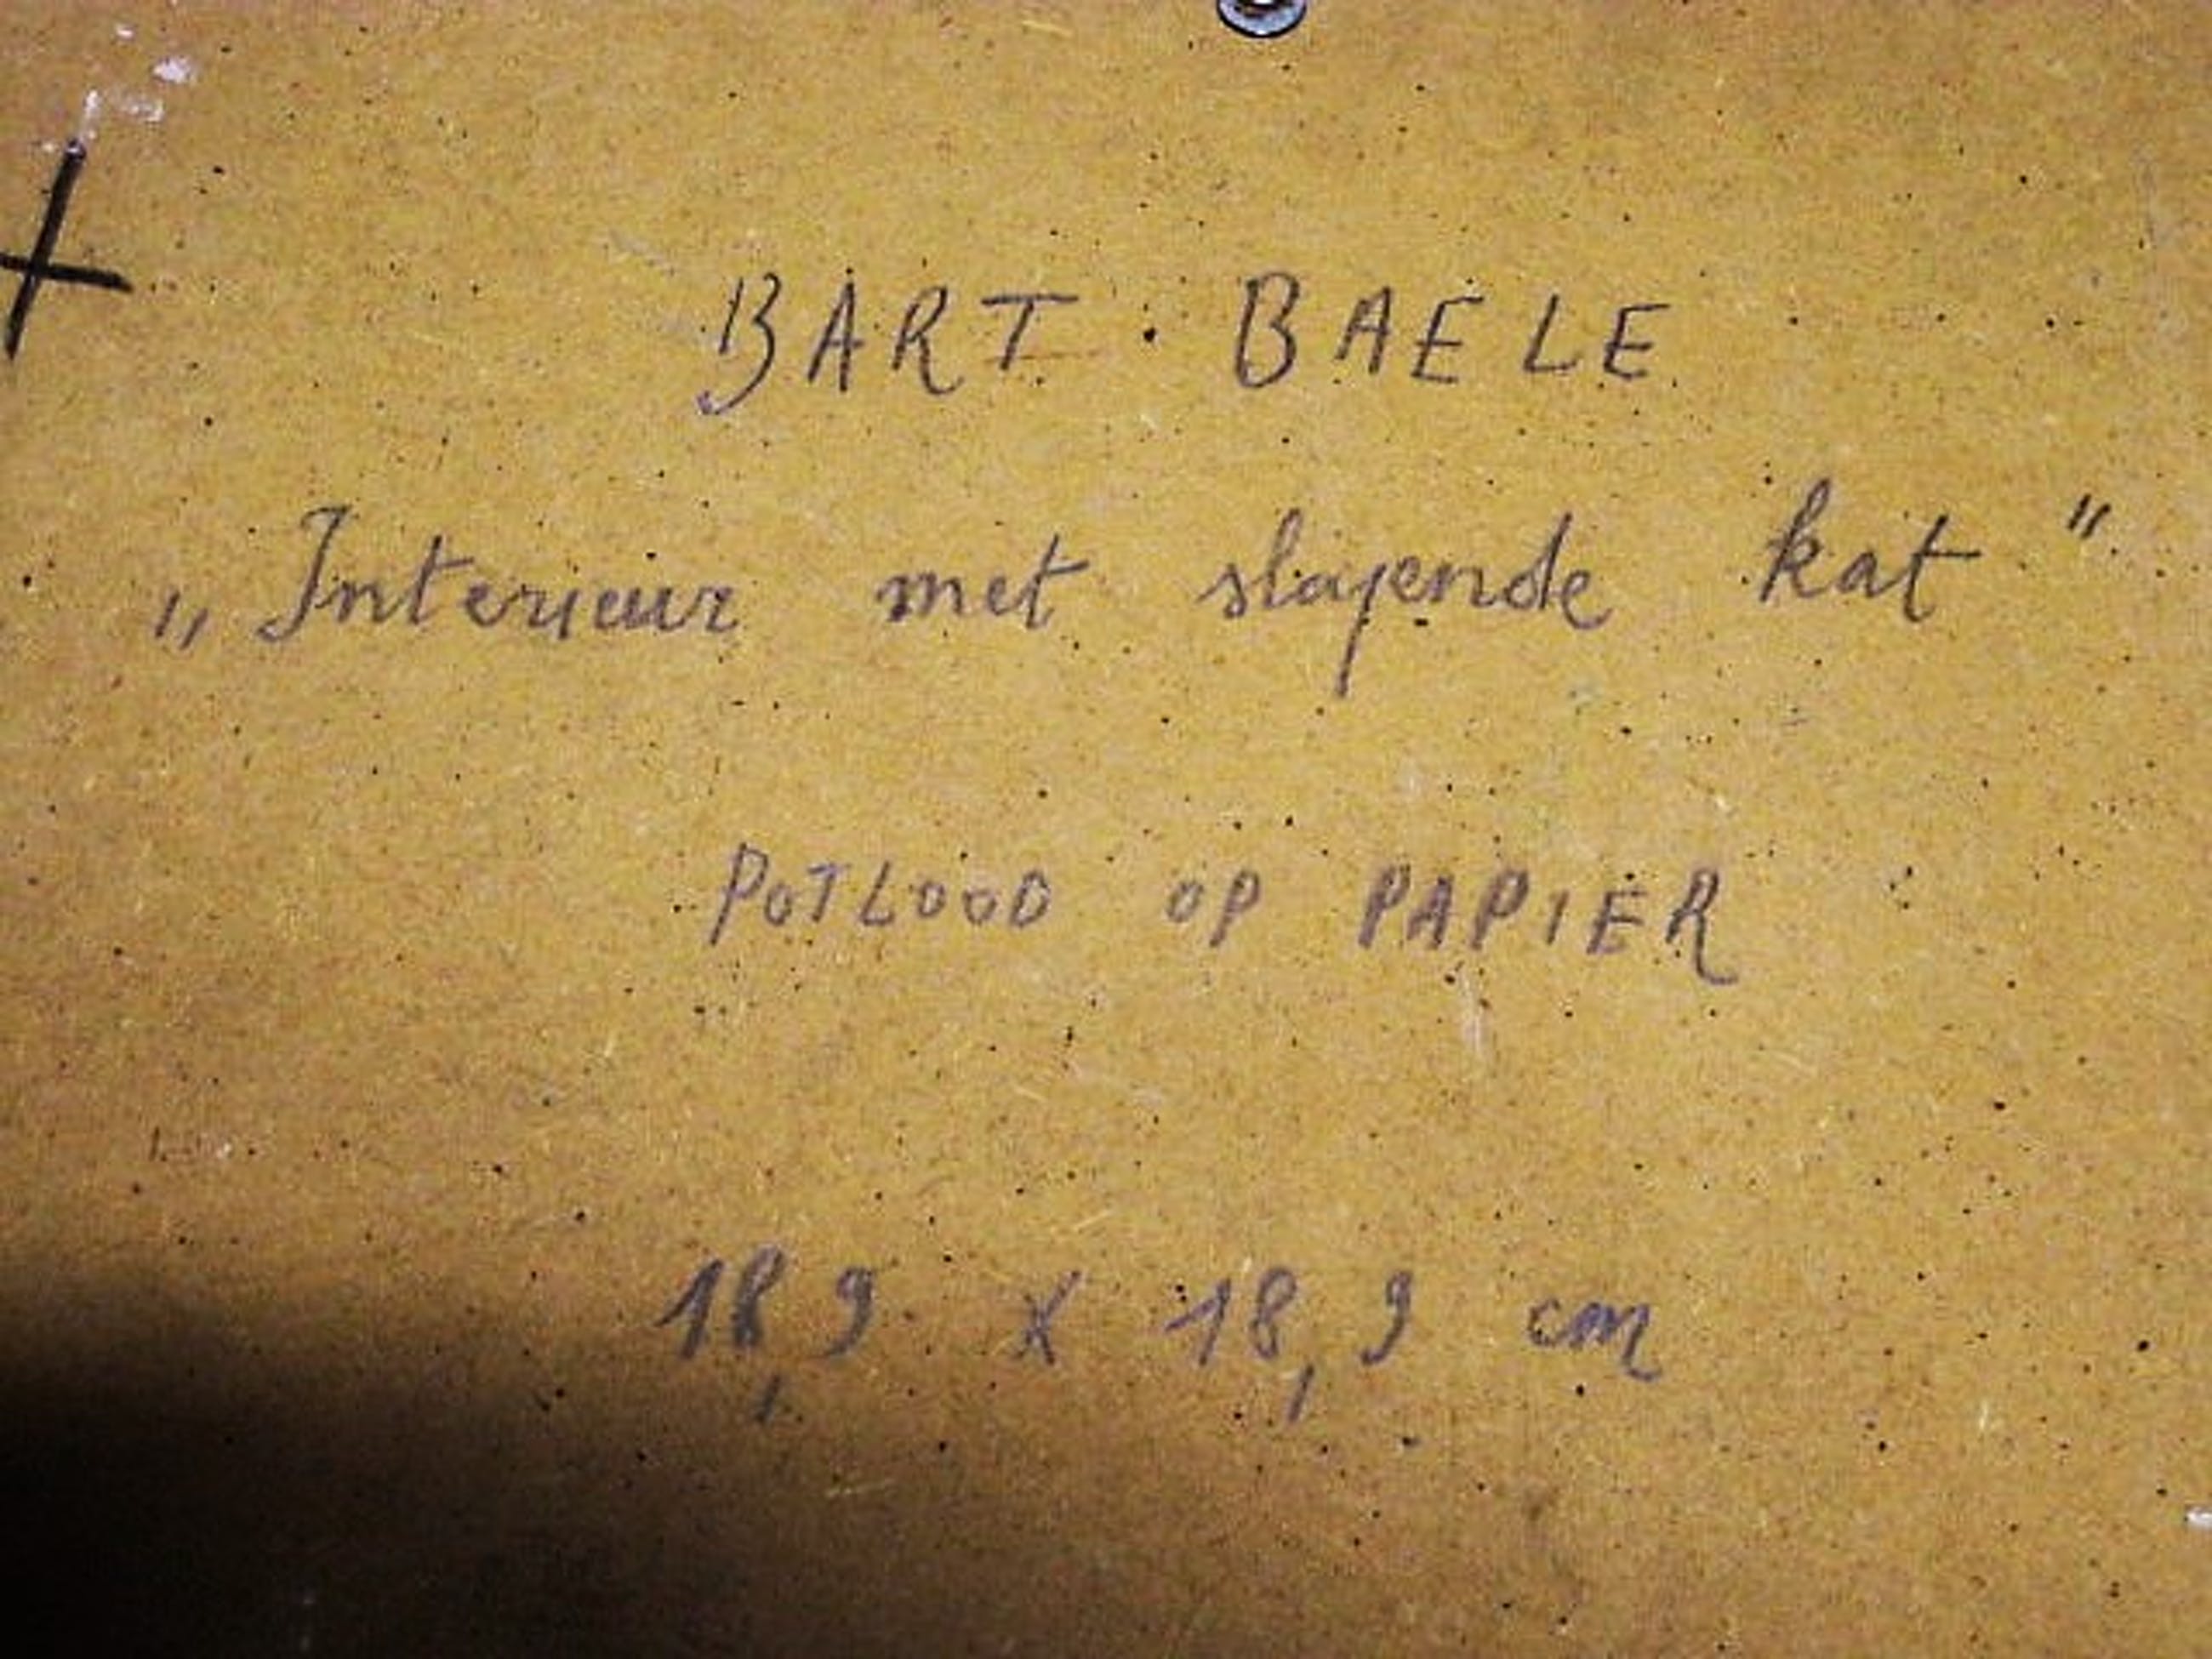 BART. BAELE
„Interieur met slapende kat"
POTLOOD OP PAPIER
18,9 x 18,9 cm